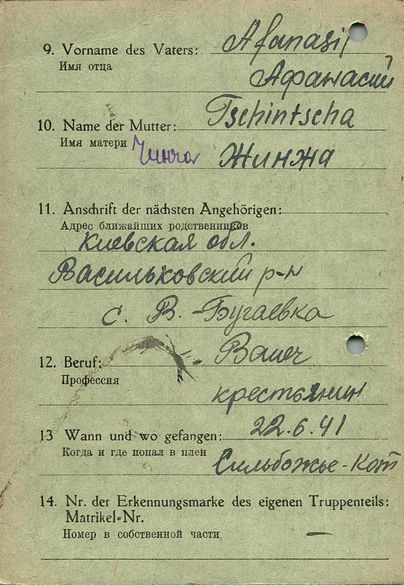 9. Vorname des Vaters: Afanasij
Имя отца Афанасий
Tschintscha
10. Name der Mutter:
Имя матери Чинча Жинжа
11. Anschrift der nächsten Angehörigen:
Адрес ближайших родственников
Киевская обл.
Васильковский р-н
с. В.-Бугаевка
12. Beruf: Bauer
Профессия
крестьянин
13 Wann und wo gefangen: 22.6.41
Когда и где попал в плен
Сильбожье-Кот
14. Nr. der Erkennungsmarke des eigenen Truppenteils:
Matrikel-Nr.
Номер в собственной части —